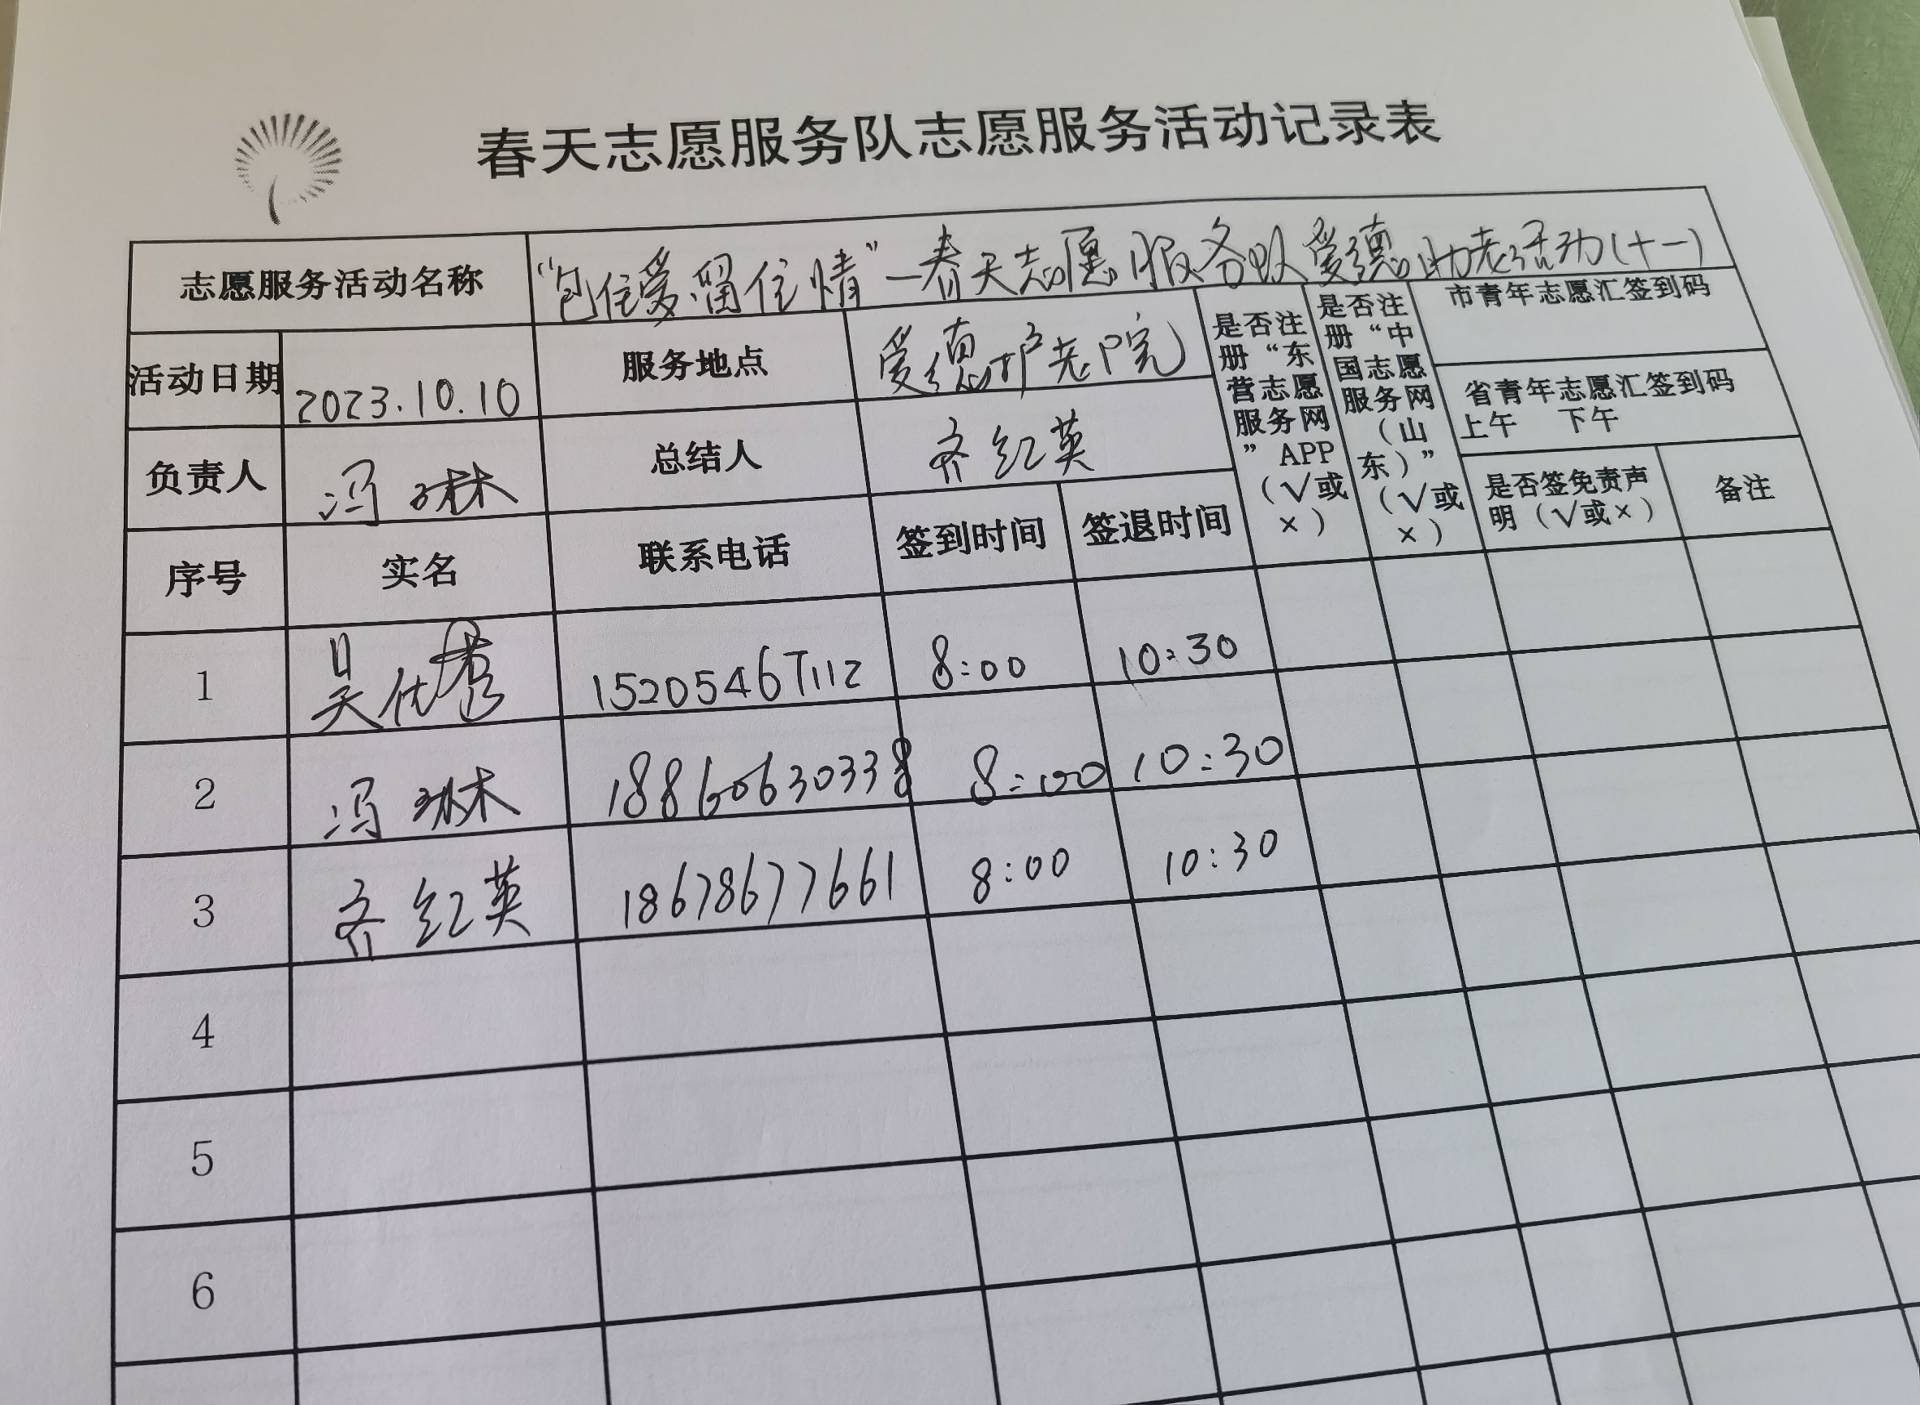 春天志愿服务队志愿服务活动记录表
志愿服务活动名称 “包住爱,留住情”—春天志愿服务队爱德助老活动(十一)
活动日期 2023.10.10 服务地点 爱德护老院
负责人 冯琳 总结人 齐红英
是否注册“东营志愿服务网”APP（√或×）
是否注册“中国志愿服务网（山东）”（√或×）
市青年志愿汇签到码
省青年志愿汇签到码
上午 下午
是否签免责声明（√或×） 备注
序号 实名 联系电话 签到时间 签退时间
1 吴优秀 15205467112 8:00 10:30
2 冯琳 18860630338 8:00 10:30
3 齐红英 18678677661 8:00 10:30
4
5
6